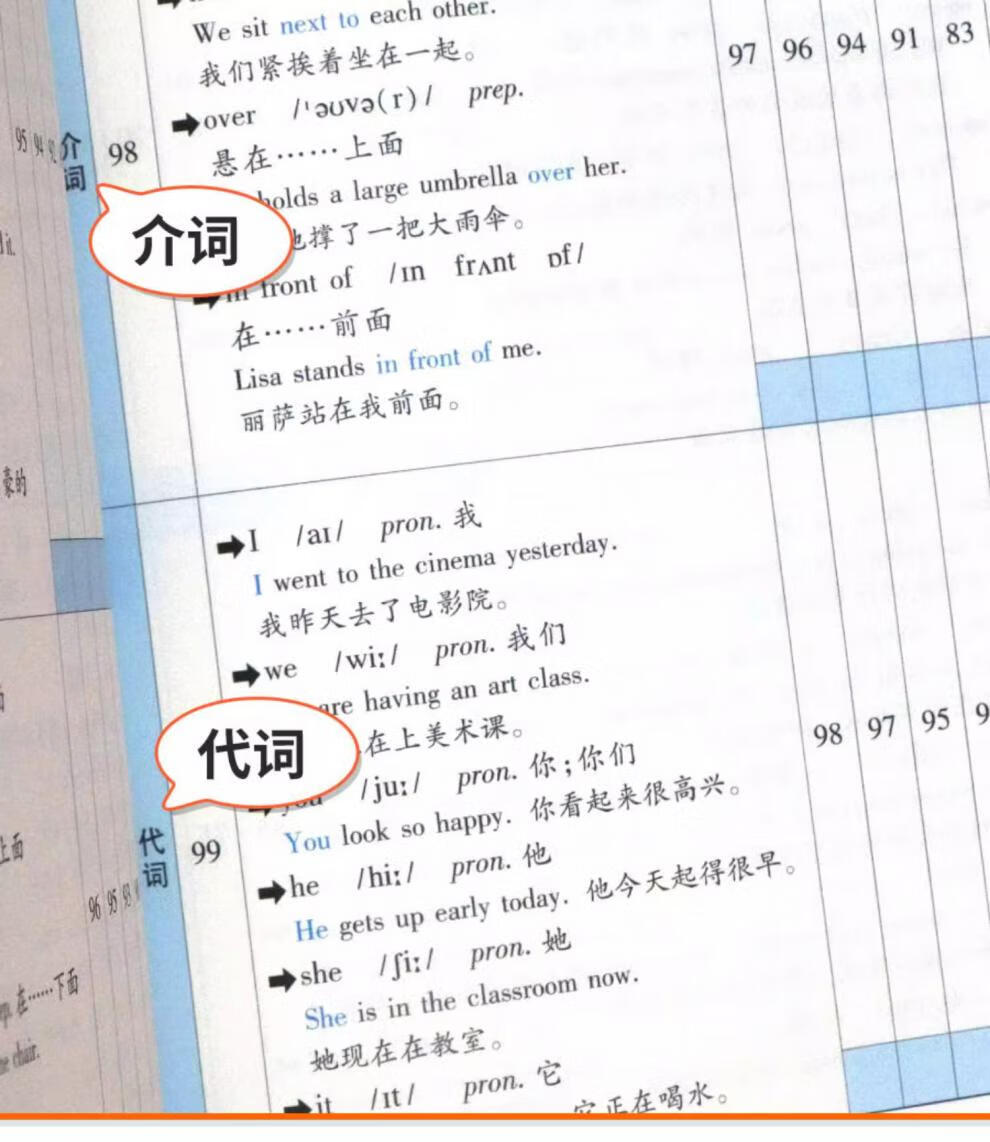 We sit next to each other.
我们紧挨着坐在一起。
97 96 94 91 83
over /ˈəʊvə(r)/ prep.
悬在……上面
98
介词
95 94
holds a large umbrella over her.
撑了一把大雨伞。
介词
front of /ɪn frʌnt ɒf/
在……前面
Lisa stands in front of me.
丽萨站在我前面。
豪的
I /aɪ/ pron. 我
I went to the cinema yesterday.
我昨天去了电影院。
we /wiː/ pron. 我们
are having an art class.
在上美术课。
代词
98 97 95
you /juː/ pron. 你;你们
You look so happy. 你看起来很高兴。
代词
99
上面
96 95 93
he /hiː/ pron. 他
He gets up early today. 他今天起得很早。
she /ʃiː/ pron. 她
She is in the classroom now.
她现在在教室。
在……下面
chair.
it /ɪt/ pron. 它
它正在喝水。